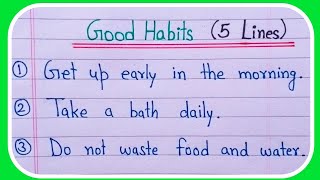 Good Habits (5 Lines)
① Get up early in the morning.
② Take a bath daily.
③ Do not waste food and water.